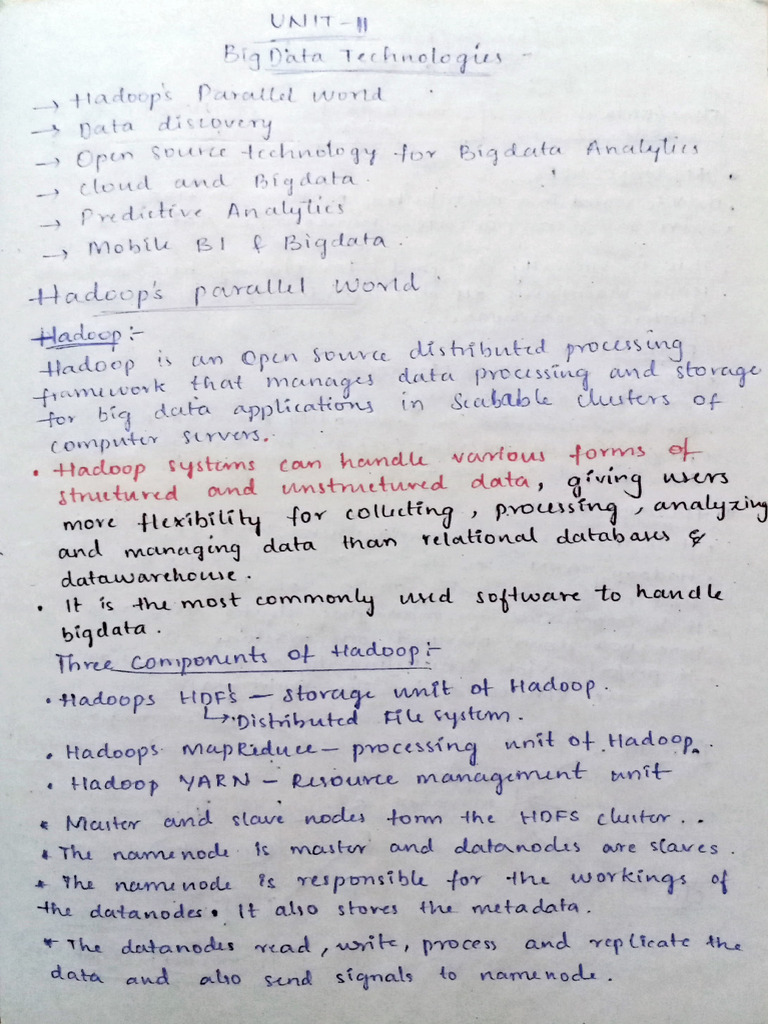 UNIT-II
Big Data Technologies -
→ Hadoop's Parallel World
→ Data discovery
→ Open source technology for Bigdata Analytics
→ Cloud and Bigdata.
→ Predictive Analytics
→ Mobile BI & Bigdata.
Hadoop's parallel World
Hadoop:-
Hadoop is an Open source distributed processing
framework that manages data processing and storage
for big data applications in Scalable clusters of
computer servers.
• Hadoop systems can handle various forms of
structured and unstructured data, giving users
more flexibility for collecting, processing, analyzing
and managing data than relational databases &
datawarehouse.
• It is the most commonly used software to handle
bigdata.
Three Components of Hadoop:-
• Hadoops HDFs - storage unit of Hadoop.
↳ Distributed File system.
• Hadoops MapReduce - processing unit of Hadoop.
• Hadoop YARN - Resource management unit
* Master and slave nodes form the HDFS cluster..
* The namenode is master and datanodes are slaves.
* The namenode is responsible for the workings of
the datanodes. It also stores the metadata.
* The datanodes read, write, process and replicate the
data and also send signals to namenode.